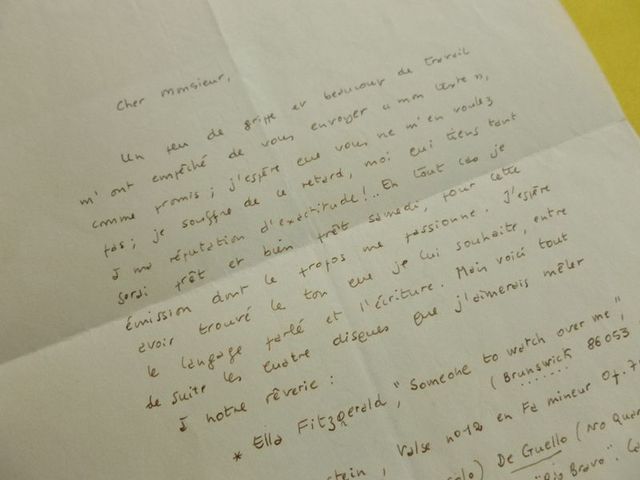 Cher Monsieur,
Un peu de grippe et beaucoup de travail
m'ont empêché de vous envoyer « mon texte »,
comme promis ; j'espère que vous ne m'en voulez
pas ; je souffre de ce retard, moi qui tiens tant
à ma réputation d'exactitude !.. En tout cas je
serai prêt et bien prêt samedi, pour cette
émission dont le propos me passionne. J'espère
avoir trouvé le ton que je lui souhaite, entre
le langage parlé et l'écriture. Mais voici tout
de suite les quatre disques que j'aimerais mêler
à notre rêverie :
* Ella Fitzgerald, "Someone to watch over me",
(Brunswick 86053
stein, Valse no 12 en Fa mineur op. 7
solo) De Guello (No Quar
"Rio Bravo".